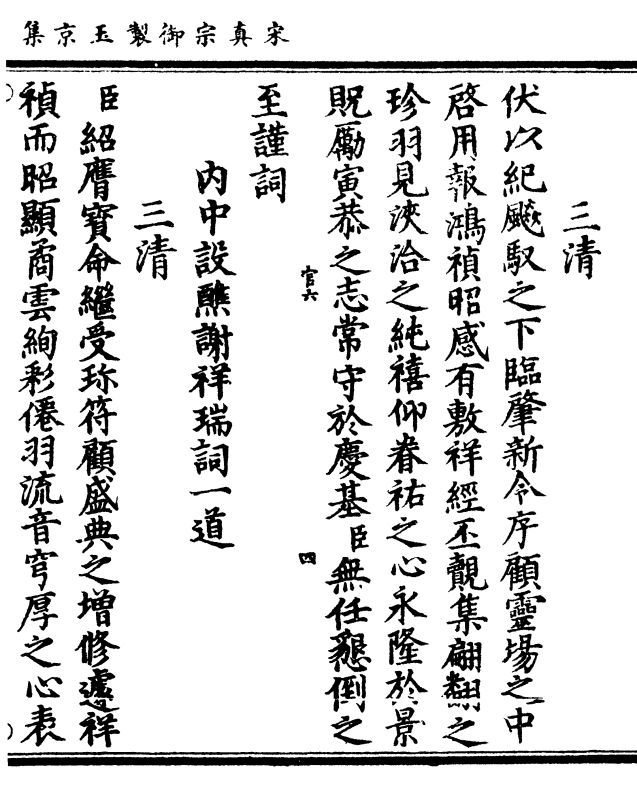 宋真宗御製玉京集
三清
伏以紀飈馭之下臨肇新令序顧靈場之中
啓用報鴻禎昭感有敷祥經丕覿集翩翻之
珍羽見浹洽之純禧仰眷祐之心永隆於景
貺勵寅恭之志常守於慶基臣無任懇倒之
至謹詞
官六
四
内中設醮謝祥瑞詞一道
三清
臣紹膺寶命繼受珎符顧盛典之增修遽祥
禎而昭顯矞雲絢彩僊羽流音穹厚之心表